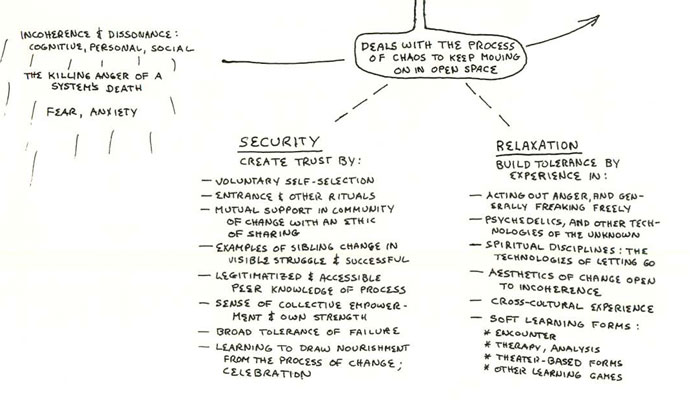 INCOHERENCE & DISSONANCE:
COGNITIVE, PERSONAL, SOCIAL
THE KILLING ANGER OF A
SYSTEM'S DEATH
FEAR, ANXIETY
DEALS WITH THE PROCESS
OF CHAOS TO KEEP MOVING
ON IN OPEN SPACE
SECURITY
CREATE TRUST BY:
— VOLUNTARY SELF-SELECTION
— ENTRANCE & OTHER RITUALS
— MUTUAL SUPPORT IN COMMUNITY
OF CHANGE WITH AN ETHIC
OF SHARING
— EXAMPLES OF SIBLING CHANGE IN
VISIBLE STRUGGLE & SUCCESSFUL
— LEGITIMATIZED & ACCESSIBLE
PEER KNOWLEDGE OF PROCESS
— SENSE OF COLLECTIVE EMPOWER-
MENT & OWN STRENGTH
— BROAD TOLERANCE OF FAILURE
— LEARNING TO DRAW NOURISHMENT
FROM THE PROCESS OF CHANGE;
CELEBRATION
RELAXATION
BUILD TOLERANCE BY
EXPERIENCE IN:
— ACTING OUT ANGER, AND GEN-
ERALLY FREAKING FREELY
— PSYCHEDELICS, AND OTHER TECH-
NOLOGIES OF THE UNKNOWN
— SPIRITUAL DISCIPLINES: THE
TECHNOLOGIES OF LETTING GO
— AESTHETICS OF CHANGE OPEN
TO INCOHERENCE
— CROSS-CULTURAL EXPERIENCE
— SOFT LEARNING FORMS:
* ENCOUNTER
* THERAPY, ANALYSIS
* THEATER-BASED FORMS
* OTHER LEARNING GAMES